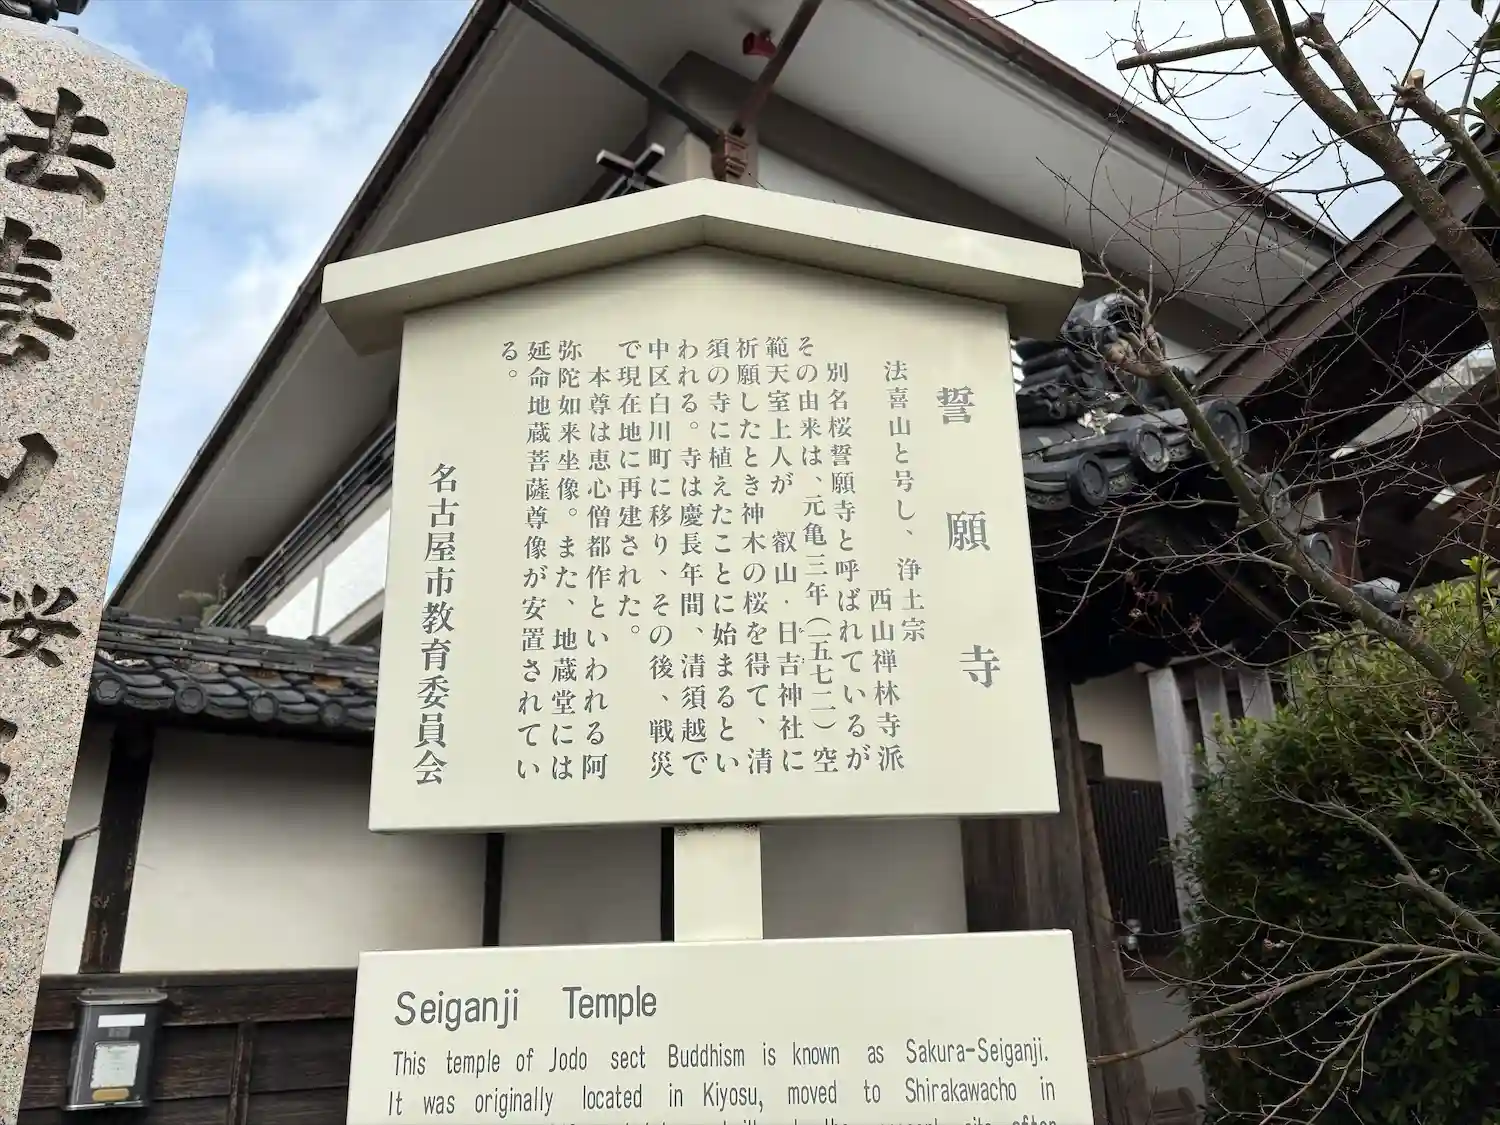 法喜ノ桜
誓願寺
法喜山と号し、浄土宗
西山禅林寺派
別名桜誓願寺と呼ばれているが
その由来は、元亀三年(一五七二)空
範天室上人が 叡山・日吉神社に
祈願したとき神木の桜を得て、清
須の寺に植えたことに始まるとい
われる。寺は慶長年間、清須越で
中区白川町に移り、その後、戦災
で現在地に再建された。
本尊は恵心僧都作といわれる阿
弥陀如来坐像。また、地蔵堂には
延命地蔵菩薩尊像が安置されてい
る。
名古屋市教育委員会
Seiganji Temple
This temple of Jodo sect Buddhism is known as Sakura-Seiganji.
It was originally located in Kiyosu, moved to Shirakawacho in